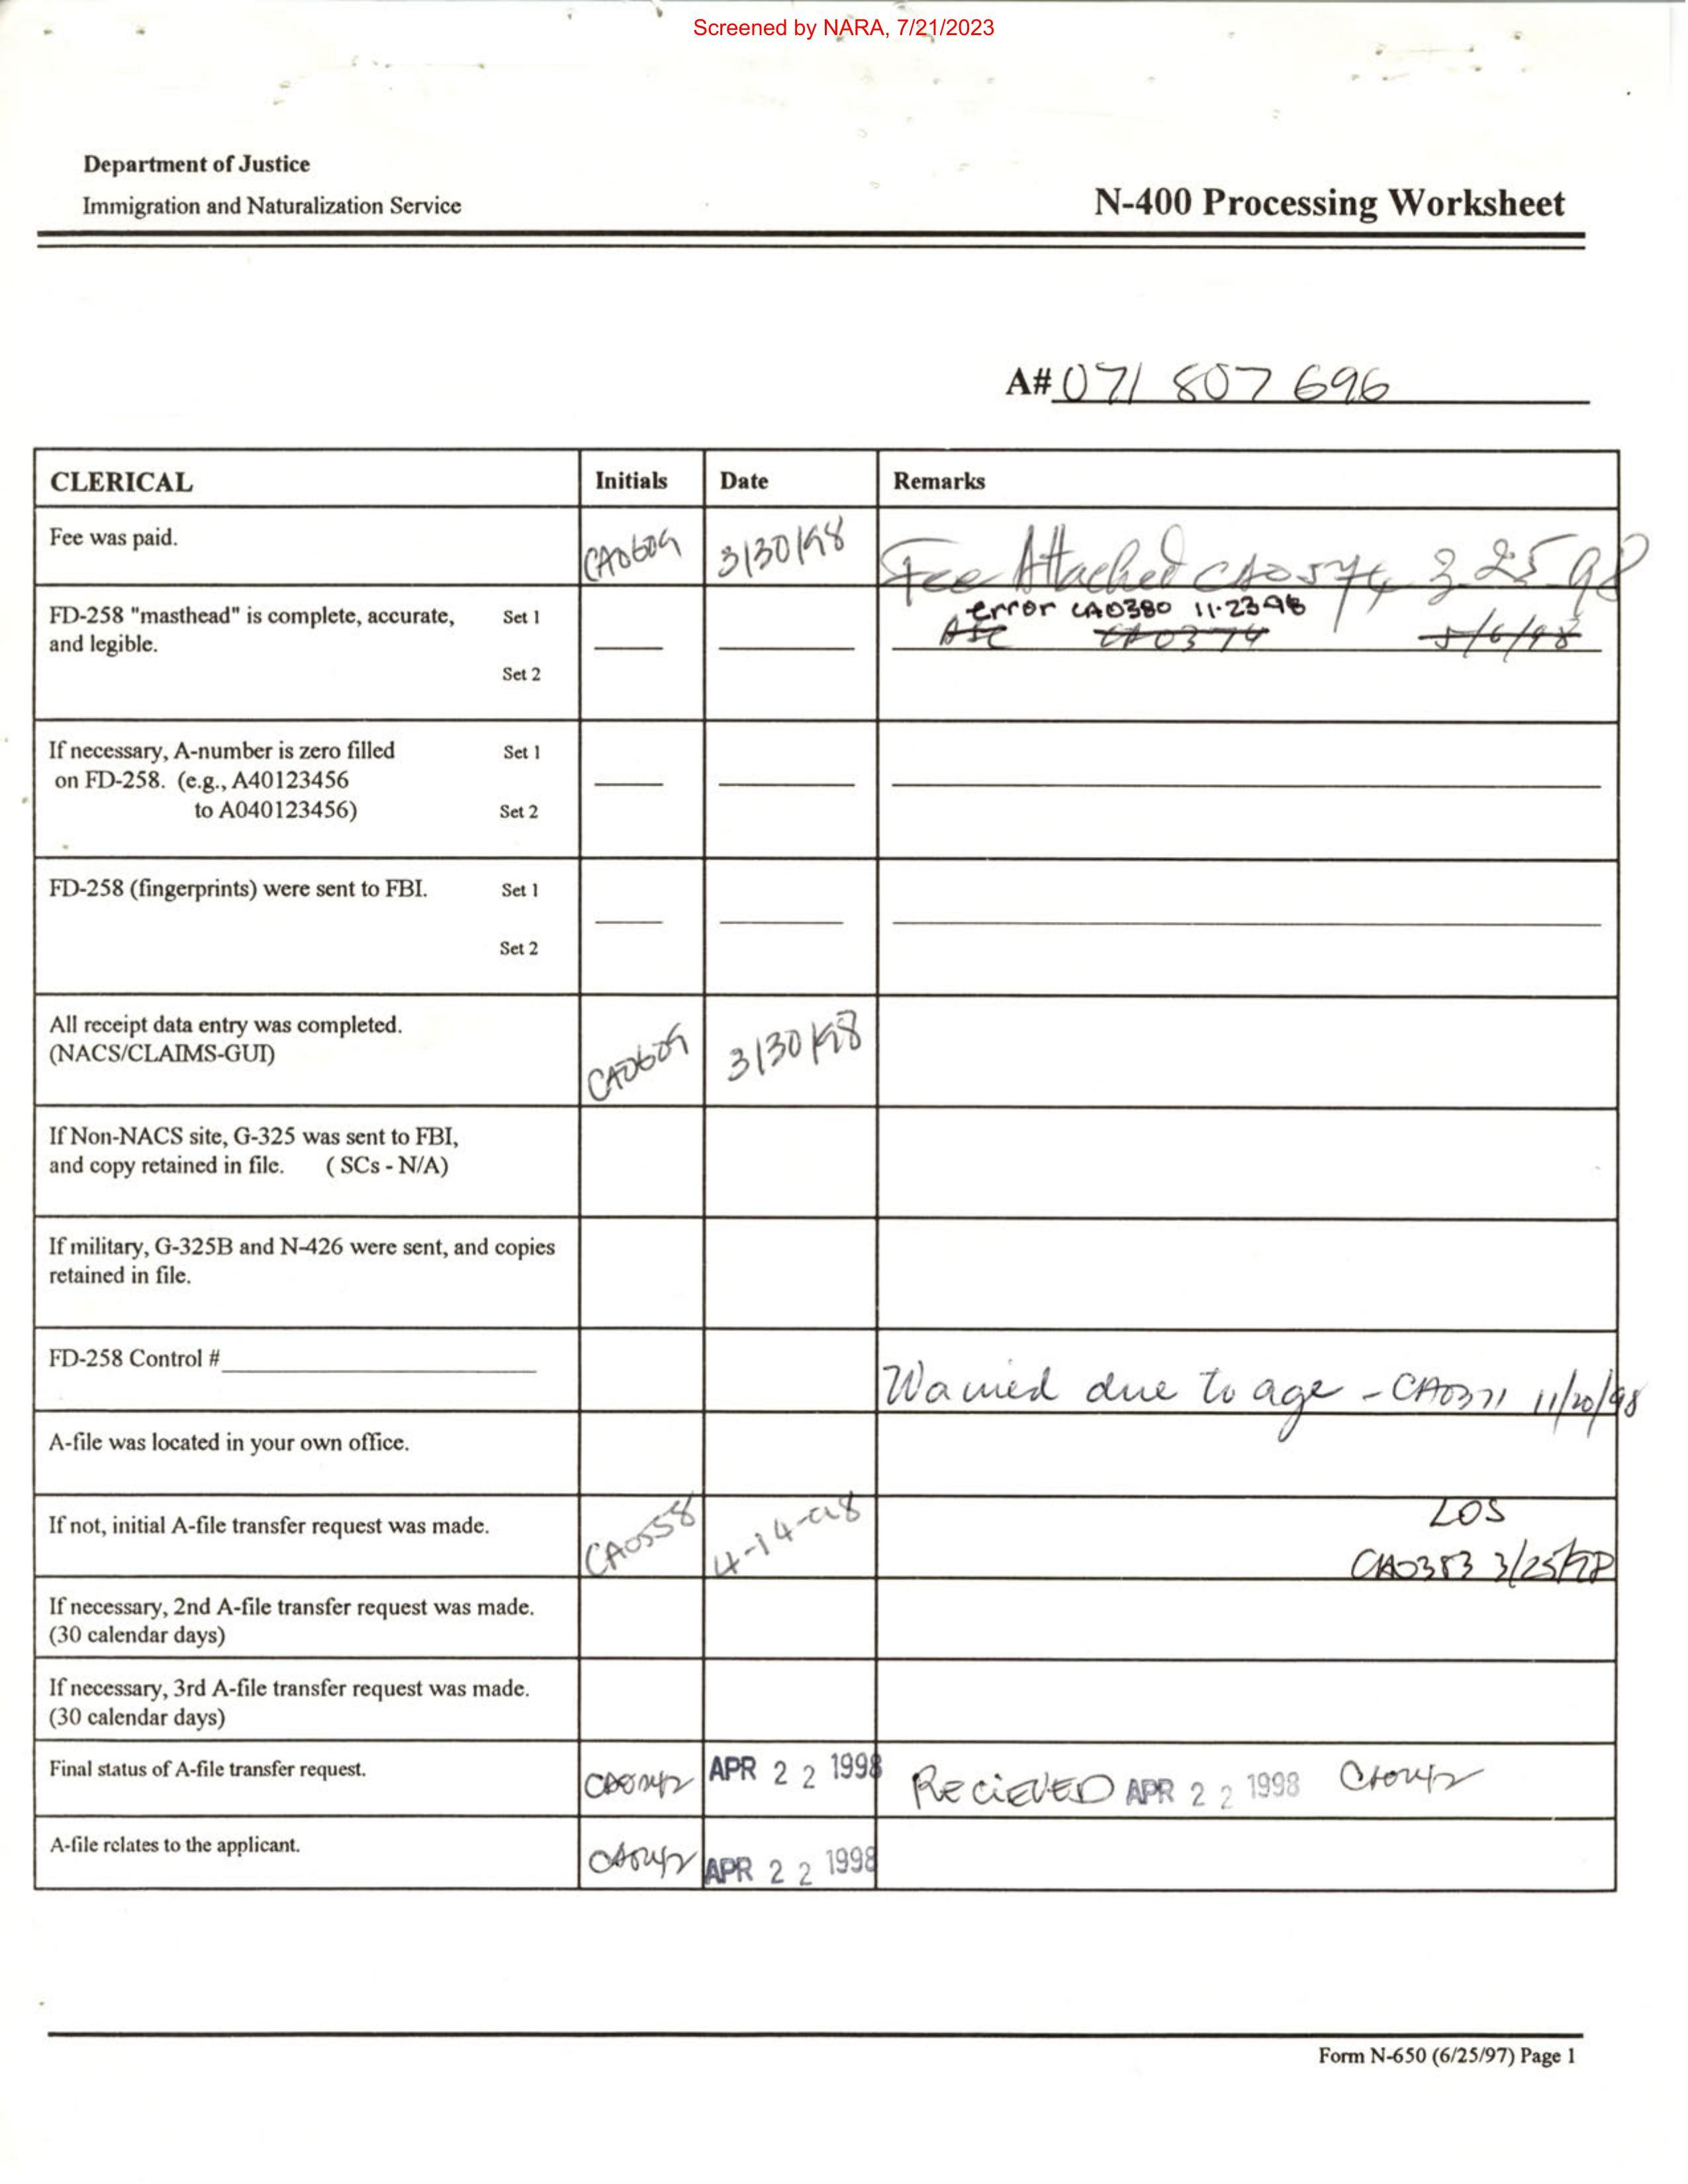 Screened by NARA, 7/21/2023
Department of Justice
Immigration and Naturalization Service
N-400 Processing Worksheet
A# 071 807 696
CLERICAL Initials Date Remarks
Fee was paid. CA0609 3/30/98 Fee Attached CA0574 3-25-98
FD-258 "masthead" is complete, accurate, Set 1 error CA0380 11-23-98
and legible. CA0374 5/6/98
Set 2
If necessary, A-number is zero filled Set 1
on FD-258. (e.g., A40123456
to A040123456) Set 2
FD-258 (fingerprints) were sent to FBI. Set 1
Set 2
All receipt data entry was completed.
(NACS/CLAIMS-GUI) CA0609 3/30/98
If Non-NACS site, G-325 was sent to FBI,
and copy retained in file. ( SCs - N/A)
If military, G-325B and N-426 were sent, and copies
retained in file.
FD-258 Control #
Waived due to age - CA0371 11/20/98
A-file was located in your own office.
If not, initial A-file transfer request was made. CA0558 4-14-98 LOS
CA0383 3/25/98
If necessary, 2nd A-file transfer request was made.
(30 calendar days)
If necessary, 3rd A-file transfer request was made.
(30 calendar days)
Final status of A-file transfer request. APR 22 1998 RECIEVED APR 22 1998
A-file relates to the applicant. APR 22 1998
Form N-650 (6/25/97) Page 1